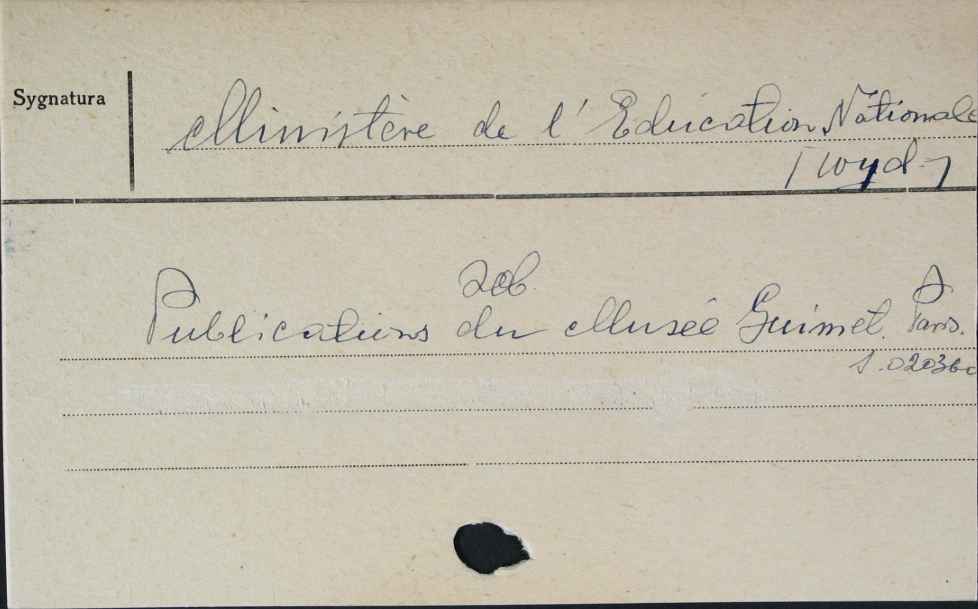 Sygnatura
Ministère de l'Education Nationale
[wyd.]
zob.
Publications du Musée Guimet. Paris.